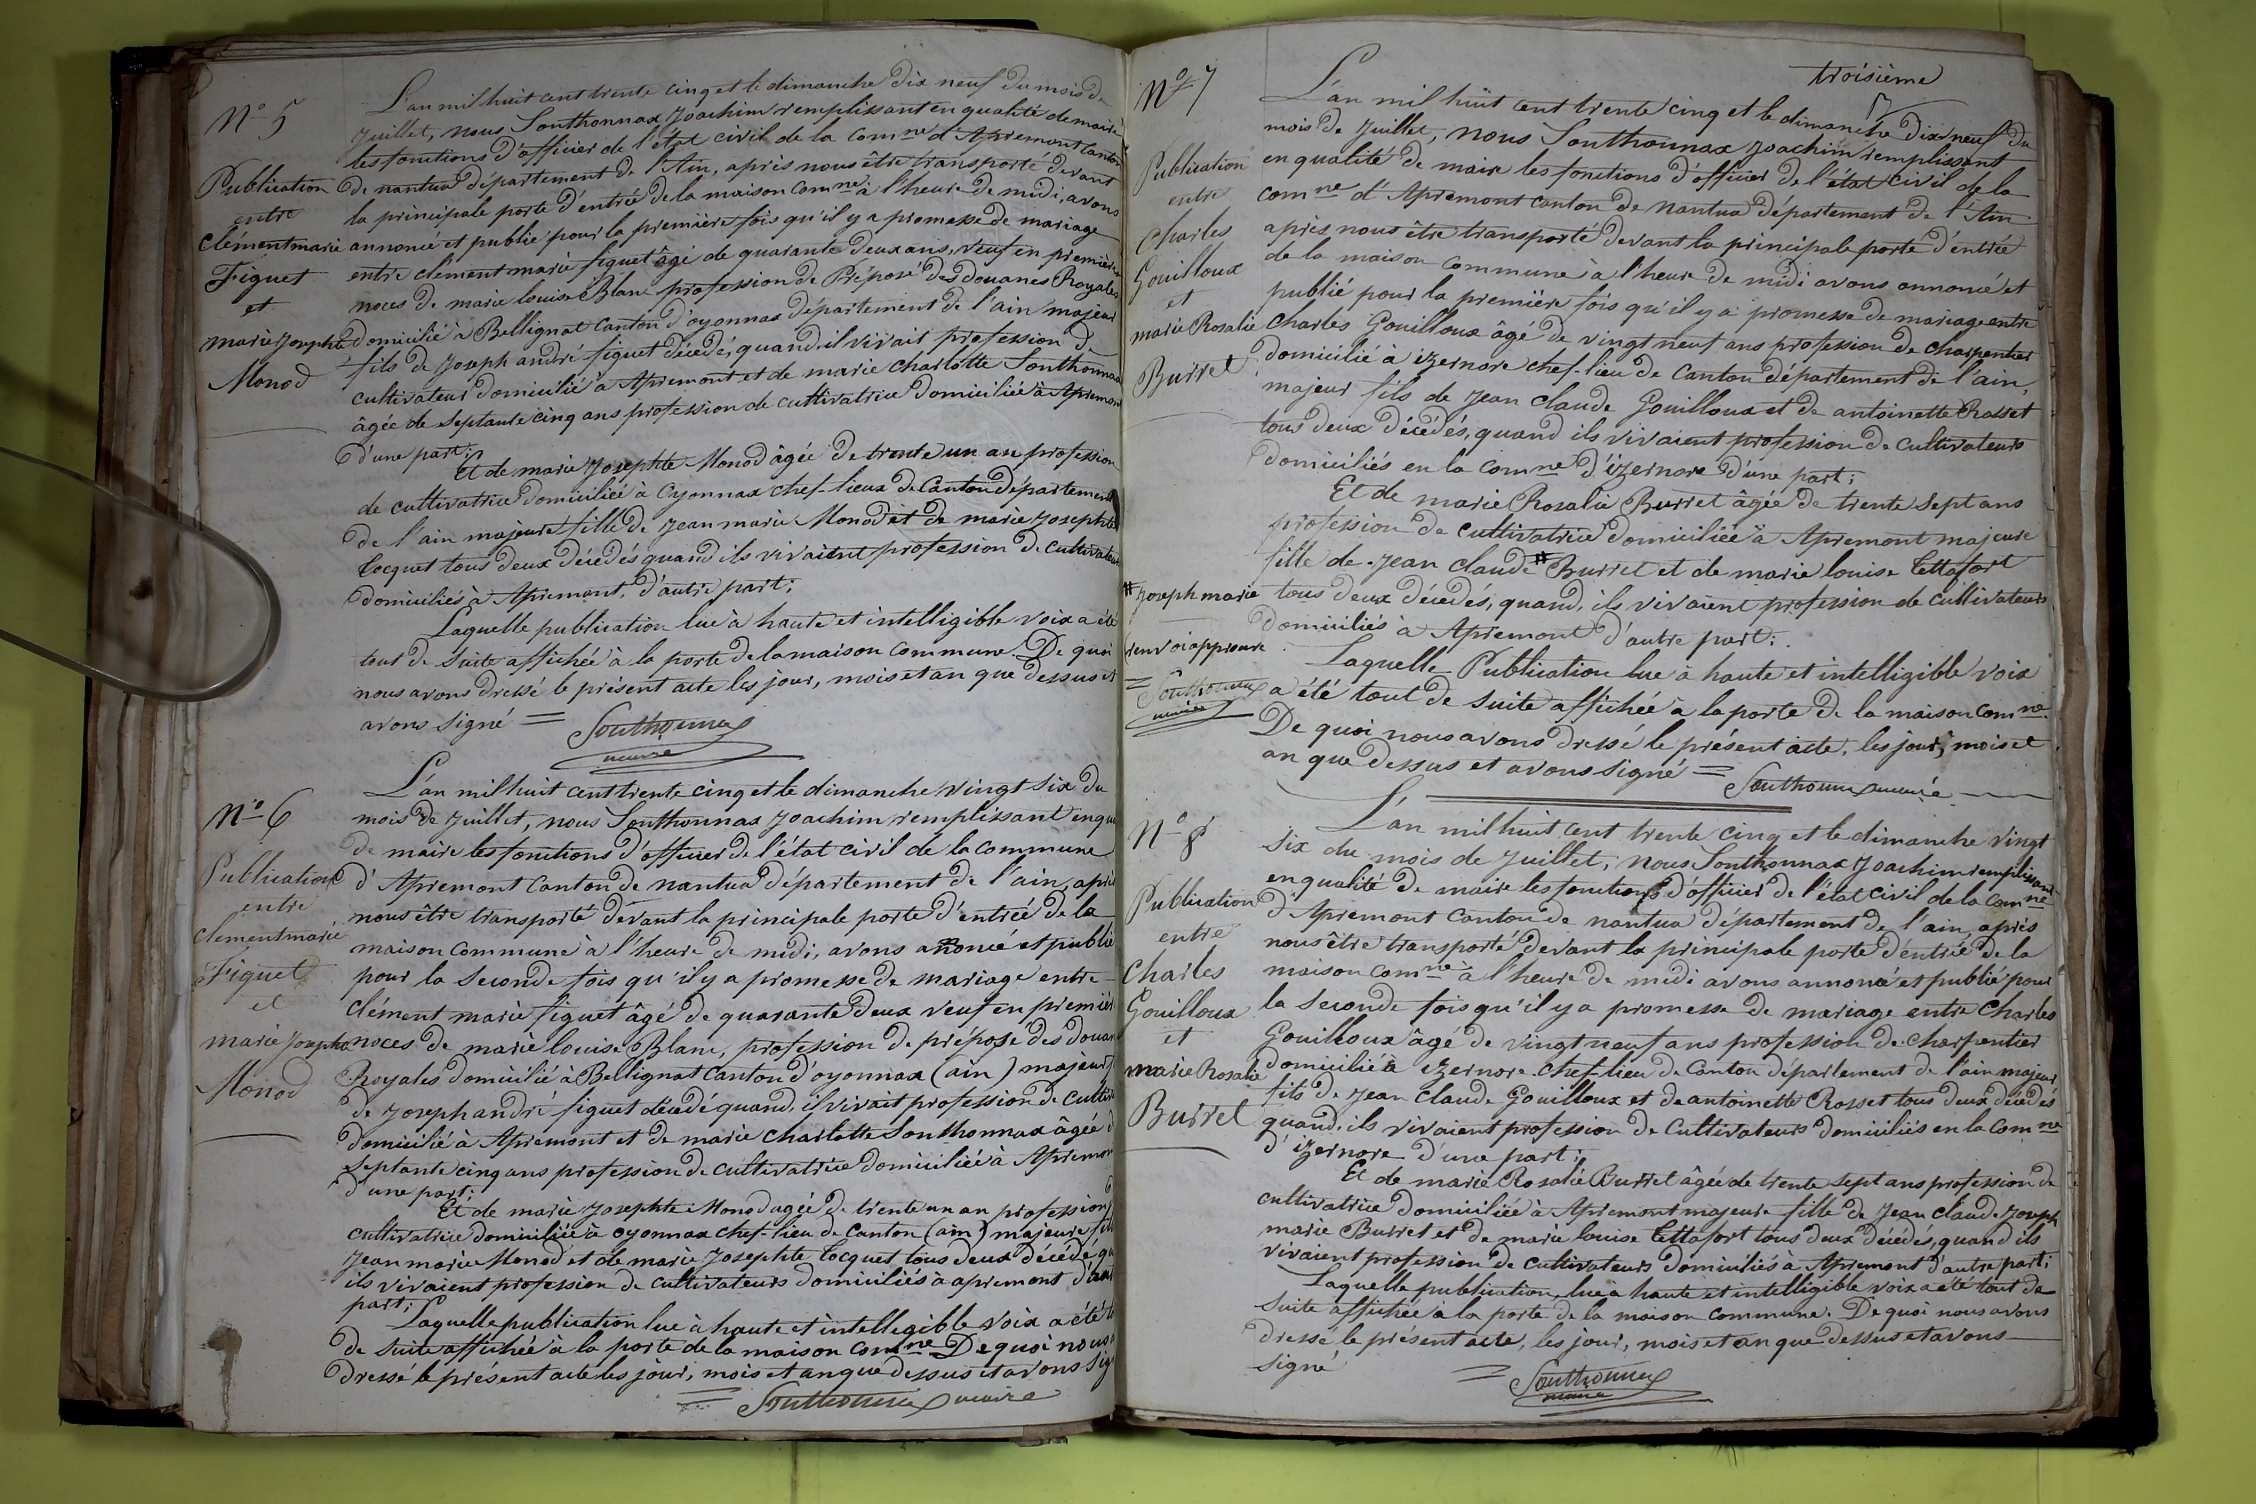 N° 5
Publication
entre
clément marie
Figuet
et
marie Josephte
Monod
L'an mil huit cent trente cinq et le dimanche dix neuf du mois de
Juillet, nous Sonthonnax Joachim remplissant en qualité de maire
les fonctions d'officier de l'état civil de la comne d'Apremont canton
de nantua département de l'Ain, après nous être transporté devant
la principale porte d'entrée de la maison comne à l'heure de midi, avons
annoncé et publié pour la première fois qu'il y a promesse de mariage
entre clément marie figuet âgé de quarante deux ans, veuf en première
noces de marie louise Blanc profession de Préposé des douanes Royales
domicilié à Bellignat canton d'oyonnax département de l'ain majeur
fils de Joseph andré figuet décédé, quand il vivait profession de
cultivateur domicilié à Apremont et de marie charlotte Sonthonnax
âgée de septante cinq ans profession de cultivatrice domiciliée à Apremont
d'une part;
Et de marie Josephte Monod âgée de trente un an profession
de cultivatrice domiciliée à Oyonnax chef-lieux de Canton département
de l'ain majeure fille de Jean marie Monod et de marie Josephte
Cocquet tous deux décédés quand ils vivaient profession de cultivateurs
domiciliés à Apremont, d'autre part;
Laquelle publication lue à haute et intelligible voix a été
tout de suite affichée à la porte de la maison commune. De quoi
nous avons dressé le présent acte les jour, mois et an que dessus et
avons signé = Sonthonnax
maire
N° 6
Publication
entre
Clément marie
Figuet
et
marie Josephte
Monod
L'an mil huit cent trente cinq et le dimanche vingt six du
mois de Juillet, nous Sonthonnax Joachim remplissant en qua
de maire les fonctions d'officier de l'état civil de la commune
d'Apremont canton de nantua département de l'ain, après
nous être transporté devant la principale porte d'entrée de la
maison commune à l'heure de midi, avons annoncé et publié
pour la seconde fois qu'il y a promesse de mariage entre
clément marie figuet âgé de quarante deux veuf en première
noces de marie louise Blanc, profession de préposé des douan
Royales domicilié à Bellignat canton d'oyonnax (ain) majeur
de Joseph andré figuet décédé quand, il vivait profession de cultiv
domicilié à Apremont et de marie charlotte Sonthonnax âgée d
septante cinq ans profession de cultivatrice domiciliée à Apremon
d'une part;
Et de marie Josephte Monod agée de trente un an profession
cultivatrice domiciliée à oyonnax chef-lieu de canton (ain) majeure fil
Jean marie Monod et de marie Josephte Cocquet tous deux décédé qu
ils vivaient profession de cultivateurs domiciliés à apremont d'aut
part;
Laquelle publication lue à haute et intellegible voix a été t
de suite affichée à la porte de la maison comne. De quoi nous
dressé le présent acte les jour, mois et an que dessus et avons sig
= Sonthonnax maire
troisième
N° 7
Publication
entre
Charles
Gouilloux
et
marie Rosalie
Burret
L'an mil huit cent trente cinq et le dimanche dix neuf du
mois de Juillet, nous Sonthonnax Joachim remplissant
en qualité de maire les fonctions d'officier de l'état civil de la
comne d'Apremont canton de nantua département de l'Ain
après nous être transporté devant la principale porte d'entrée
de la maison commune à l'heure de midi avons annoncé et
publié pour la première fois qu'il y a promesse de mariage entre
Charles Gouilloux âgé de vingt neuf ans profession de charpentier
domicilié à izernore chef-lieu de canton département de l'ain,
majeur fils de Jean claude Gouilloux et de antoinette Rosset
tous deux décédés, quand ils vivaient profession de cultivateurs
domiciliés en la comne d'izernore d'une part;
Et de marie Rosalie Burret âgée de trente sept ans
profession de cultivatrice domiciliée à Apremont majeure
fille de Jean claude # Burret et de marie louise Cettafort
tous deux décédés, quand, ils vivaient profession de cultivateurs
domiciliés à Apremont d'autre part;
# Joseph marie
renvoi approuvé
= Sonthonnax
maire
Laquelle Publication lue à haute et intelligible voix
a été tout de suite affichée à la porte de la maison comne.
De quoi nous avons dressé le présent acte, les jour, mois et
an que dessus et avons signé = Sonthonnax maire
N° 8
Publication
entre
Charles
Gouilloux
et
marie Rosalie
Burret
L'an mil huit cent trente cinq et le dimanche vingt
six du mois de Juillet, nous Sonthonnax Joachim remplissant
en qualité de maire les fonctions d'officier de l'état civil de la comne
d'Apremont canton de nantua département de l'ain, après
nous être transporté devant la principale porte d'entrée de la
maison comne à l'heure de midi avons annoncé et publié pour
la seconde fois qu'il y a promesse de mariage entre Charles
Gouilloux âgé de vingt neuf ans profession de charpentier
domicilié à izernore chef-lieu de Canton département de l'ain majeur
fils de Jean claude Gouilloux et de antoinette Rosset tous deux décédés
quand, ils vivaient profession de cultivateurs domiciliés en la comne
d'izernore d'une part;
Et de marie Rosalie Burret âgée de trente sept ans profession de
cultivatrice domiciliée à Apremont majeure fille de Jean claude Joseph
marie Burret et de marie louise Cettafort tous deux décédés, quand ils
vivaient profession de cultivateurs domiciliés à Apremont d'autre part;
Laquelle publication, lue à haute et intelligible voix a été tout de
suite affichée à la porte de la maison commune. De quoi nous avons
dressé le présent acte, les jour, mois et an que dessus et avons
signé = Sonthonnax
maire